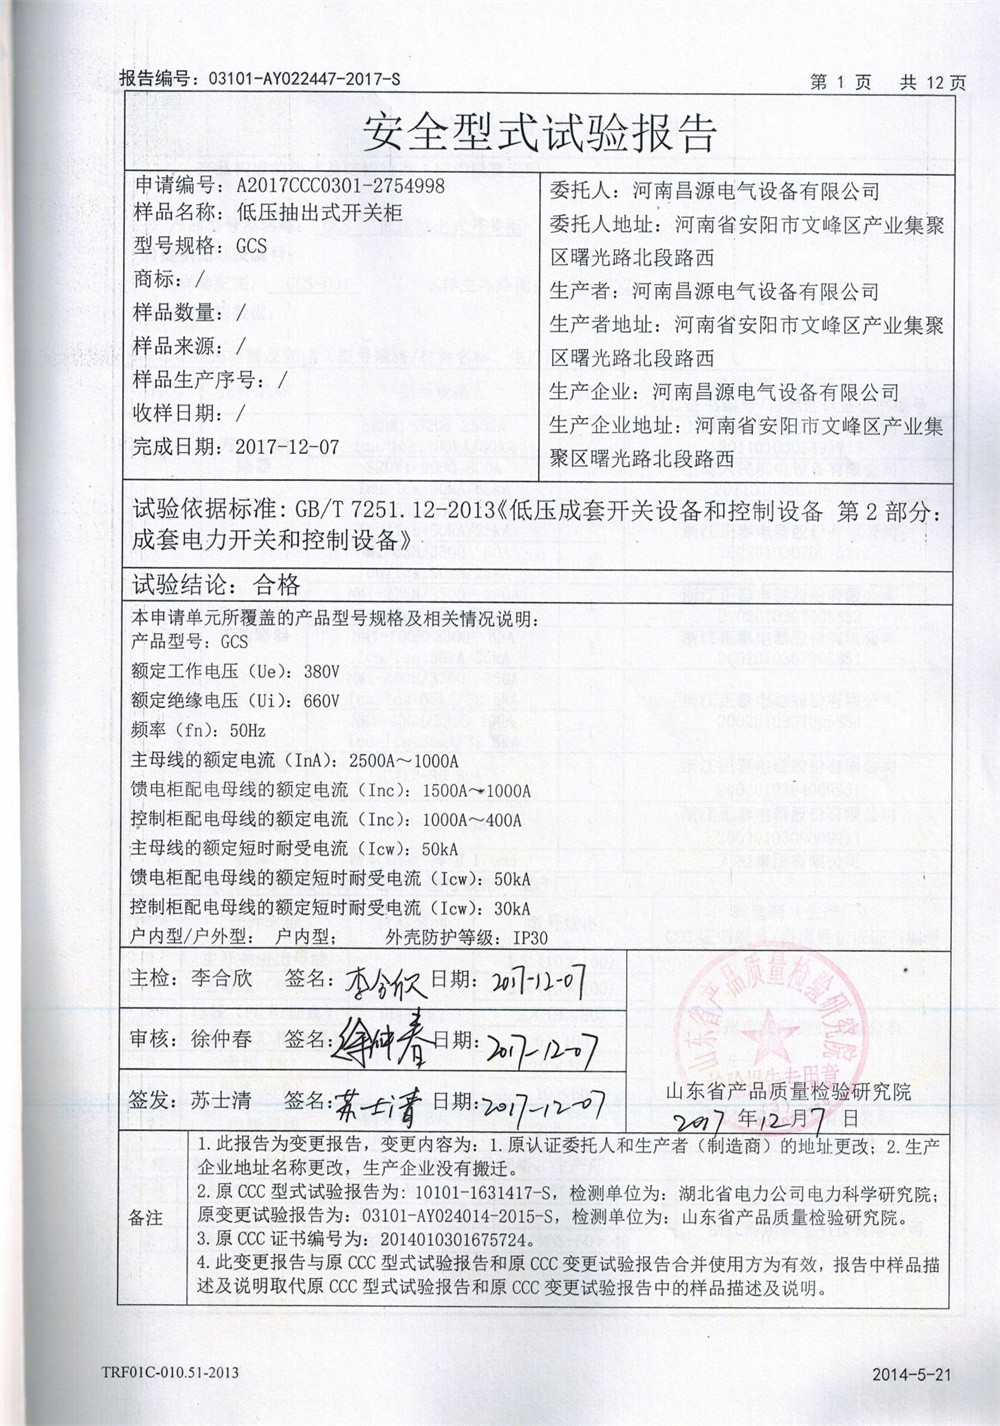 报告编号：03101-AY022447-2017-S
第 1 页 共 12 页
安全型式试验报告
申请编号：A2017CCC0301-2754998
样品名称：低压抽出式开关柜
型号规格：GCS
商标：/
样品数量：/
样品来源：/
样品生产序号：/
收样日期：/
完成日期：2017-12-07
委托人：河南昌源电气设备有限公司
委托人地址：河南省安阳市文峰区产业集聚
区曙光路北段路西
生产者：河南昌源电气设备有限公司
生产者地址：河南省安阳市文峰区产业集聚
区曙光路北段路西
生产企业：河南昌源电气设备有限公司
生产企业地址：河南省安阳市文峰区产业集
聚区曙光路北段路西
试验依据标准：GB/T 7251.12-2013《低压成套开关设备和控制设备 第 2 部分：
成套电力开关和控制设备》
试验结论：合格
本申请单元所覆盖的产品型号规格及相关情况说明：
产品型号：GCS
额定工作电压（Ue）：380V
额定绝缘电压（Ui）：660V
频率（fn）：50Hz
主母线的额定电流（InA）：2500A～1000A
馈电柜配电母线的额定电流（Inc）：1500A～1000A
控制柜配电母线的额定电流（Inc）：1000A～400A
主母线的额定短时耐受电流（Icw）：50kA
馈电柜配电母线的额定短时耐受电流（Icw）：50kA
控制柜配电母线的额定短时耐受电流（Icw）：30kA
户内型/户外型： 户内型； 外壳防护等级：IP30
主检：李合欣 签名：李合欣 日期：2017-12-07
审核：徐仲春 签名：徐仲春 日期：2017-12-07
签发：苏士清 签名：苏士清 日期：2017-12-07
山东省产品质量检验研究院
山东省产品质量检验研究院
2017 年 12 月 7 日
备注
1.此报告为变更报告，变更内容为：1.原认证委托人和生产者（制造商）的地址更改；2.生产
企业地址名称更改，生产企业没有搬迁。
2.原 CCC 型式试验报告为：10101-1631417-S，检测单位为：湖北省电力公司电力科学研究院；
原变更试验报告为：03101-AY024014-2015-S，检测单位为：山东省产品质量检验研究院。
3.原 CCC 证书编号为：2014010301675724。
4.此变更报告与原 CCC 型式试验报告和原 CCC 变更试验报告合并使用方为有效，报告中样品描
述及说明取代原 CCC 型式试验报告和原 CCC 变更试验报告中的样品描述及说明。
TRF01C-010.51-2013
2014-5-21